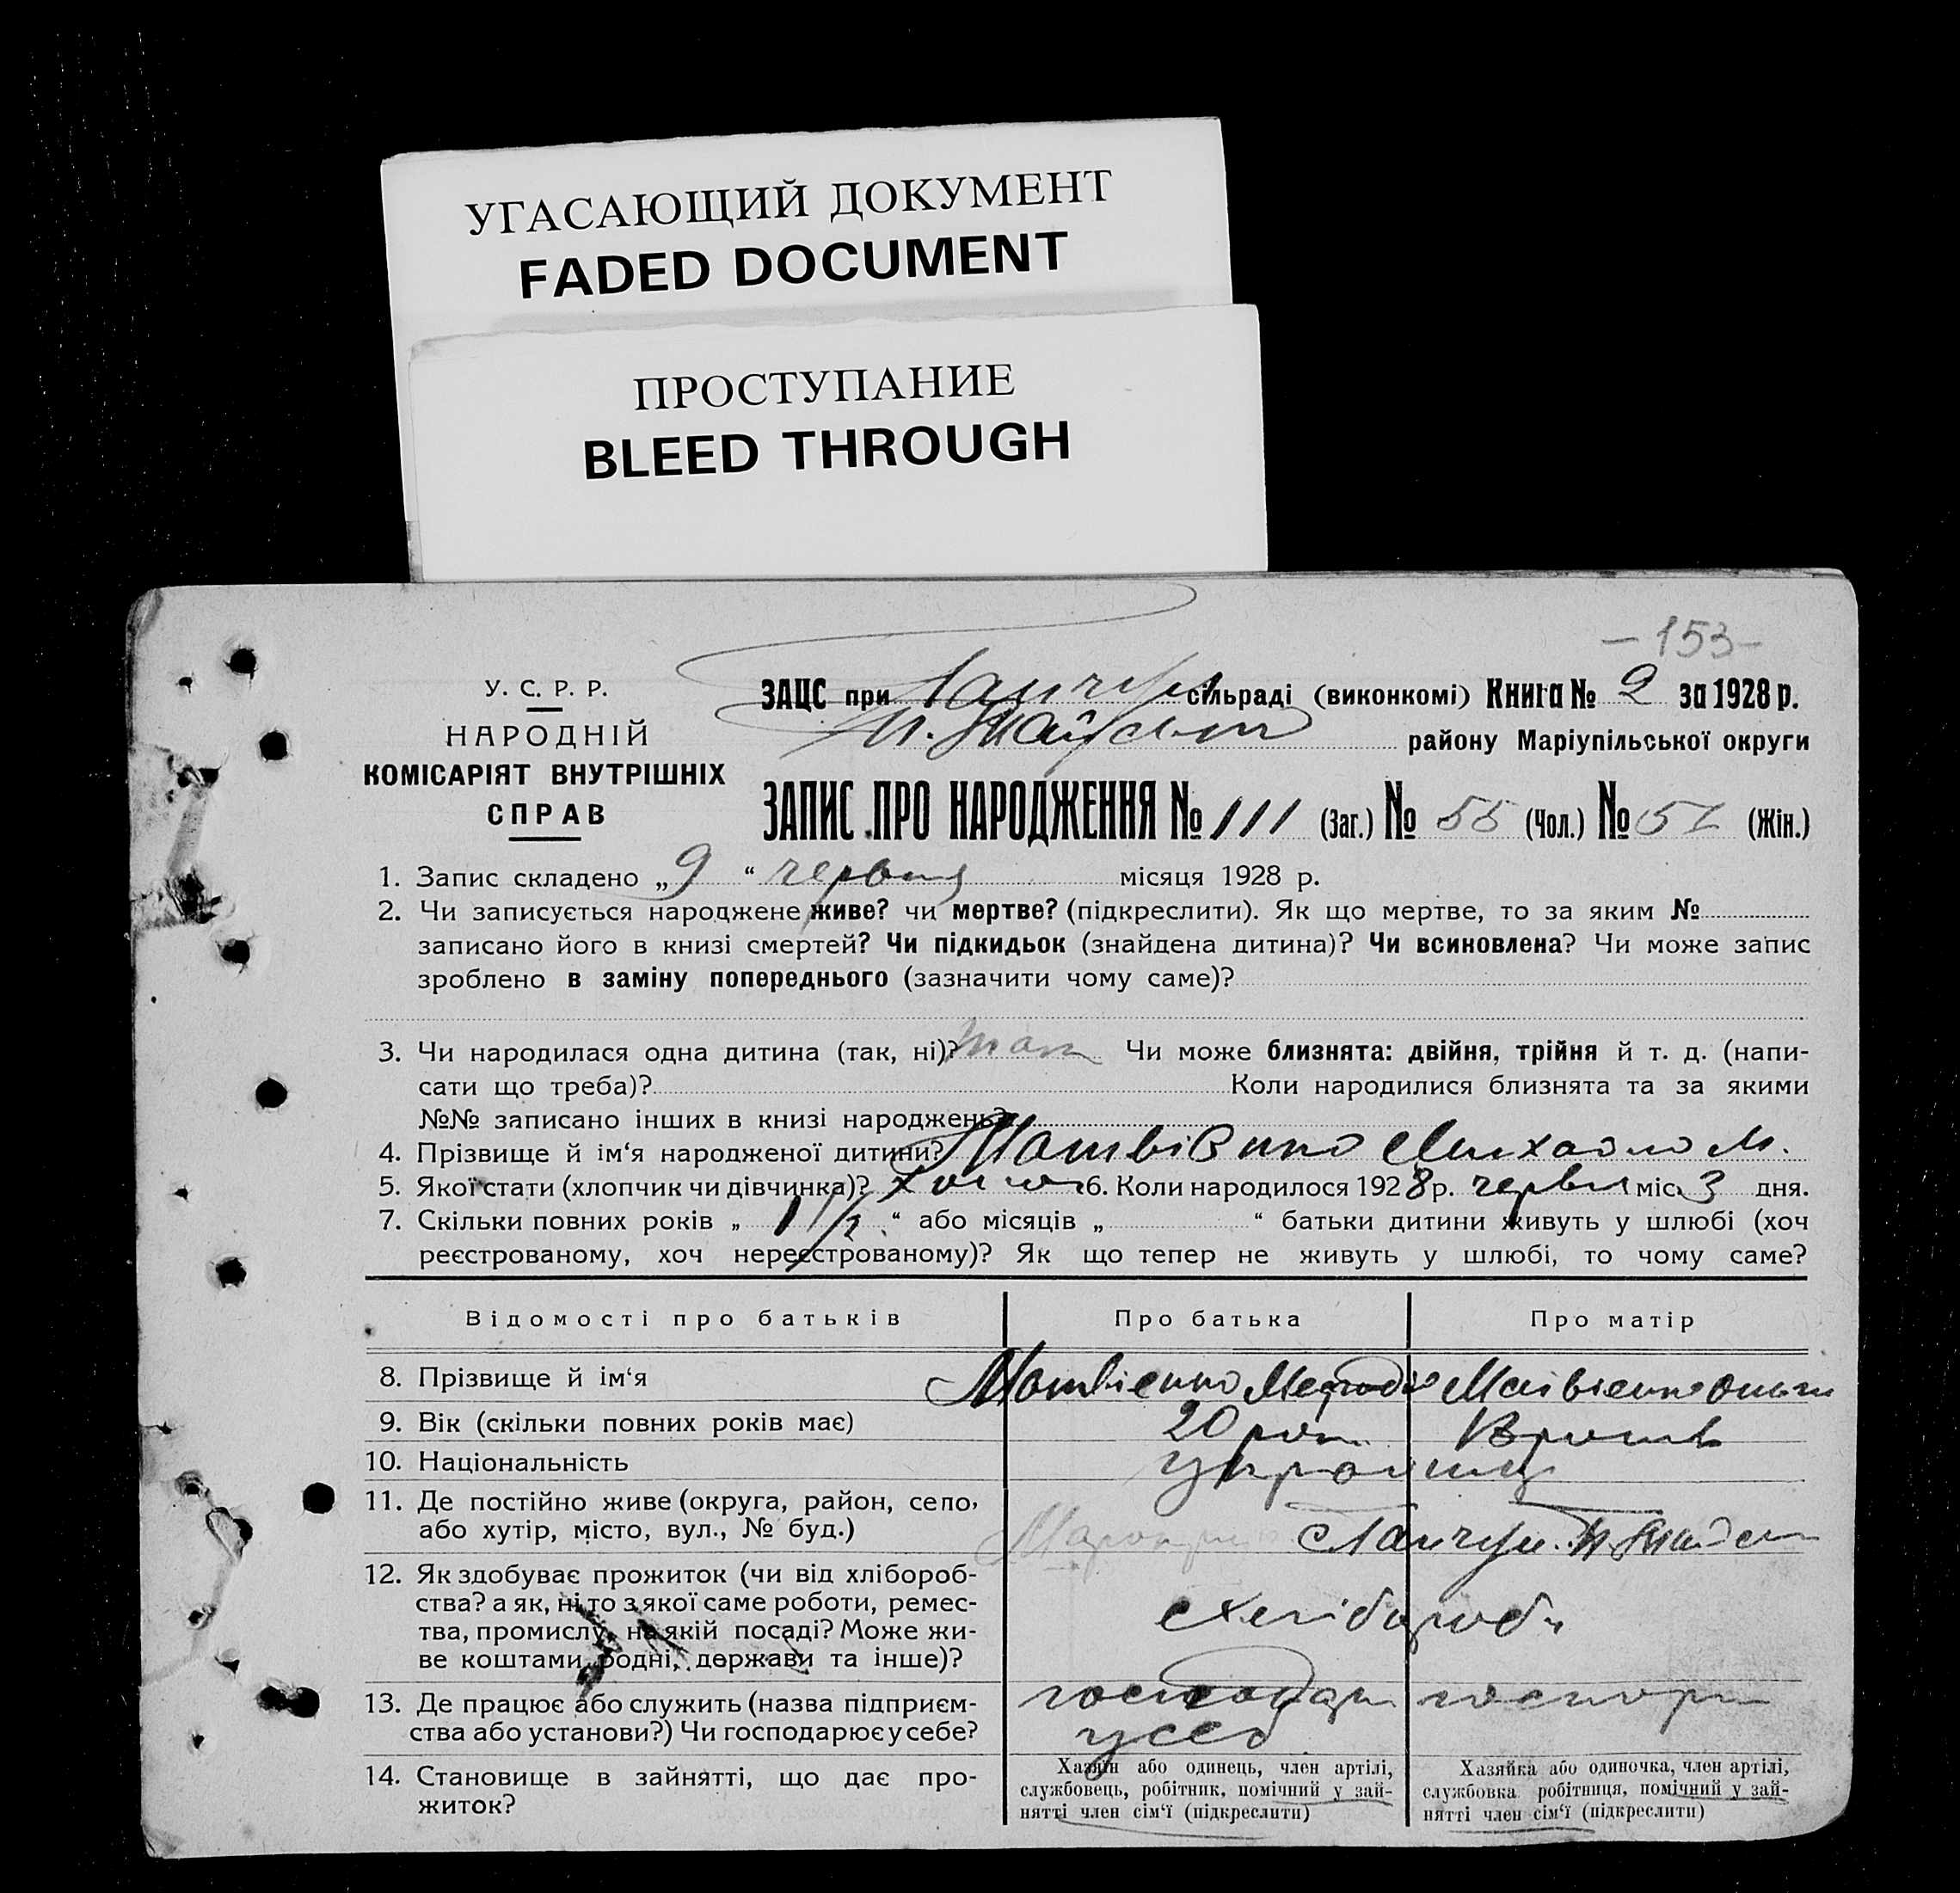 УГАСАЮЩИЙ ДОКУМЕНТ
FADED DOCUMENT
ПРОСТУПАНИЕ
BLEED THROUGH
- 153 -
У. С. Р. Р.
НАРОДНІЙ
КОМІСАРІЯТ ВНУТРІШНІХ
СПРАВ
ЗАЦС при сільраді (виконкомі) Книга № 2 за 1928 р.
району Маріупільської округи
ЗАПИС ПРО НАРОДЖЕННЯ № 111 (Заг.) № 55 (Чол.) № (Жін.)
1. Запис складено „ 9 “ червня місяця 1928 р.
2. Чи записується народжене живе? чи мертве? (підкреслити). Як що мертве, то за яким №
записано його в книзі смертей? Чи підкидьок (знайдена дитина)? Чи всиновлена? Чи може запис
зроблено в заміну попереднього (зазначити чому саме)?
3. Чи народилася одна дитина (так, ні)? так Чи може близнята: двійня, трійня й т. д. (напи-
сати що треба)? Коли народилися близнята та за якими
№№ записано інших в книзі народжень?
4. Прізвище й ім‘я народженої дитини? Матвієнко Михайло М.
5. Якої стати (хлопчик чи дівчинка)? 6. Коли народилося 1928 р. червня міс. 3 дня.
7. Скільки повних років „ 1 1/2 “ або місяців „ “ батьки дитини живуть у шлюбі (хоч
реєстрованому, хоч нереєстрованому)? Як що тепер не живуть у шлюбі, то чому саме?
Відомості про батьків Про батька Про матір
8. Прізвище й ім‘я Матвієнко Матвієнко
9. Вік (скільки повних років має) 20
10. Національність
11. Де постійно живе (округа, район, село,
або хутір, місто, вул., № буд.)
12. Як здобуває прожиток (чи від хлібороб-
ства? а як, ні, то з якої саме роботи, ремес-
тва, промислу, на якій посаді? Може жи-
ве коштами родні, держави та інше)?
13. Де працює або служить (назва підприєм-
ства або установи?) Чи господарює у себе?
14. Становище в зайнятті, що дає про-
житок?
Хазяїн або одинець, член артілі,
службовець, робітник, помічний у зай-
нятті член сім‘ї (підкреслити)
Хазяйка або одиночка, член артілі,
службовка робітниця, помічний у зай-
нятті член сім‘ї (підкреслити)